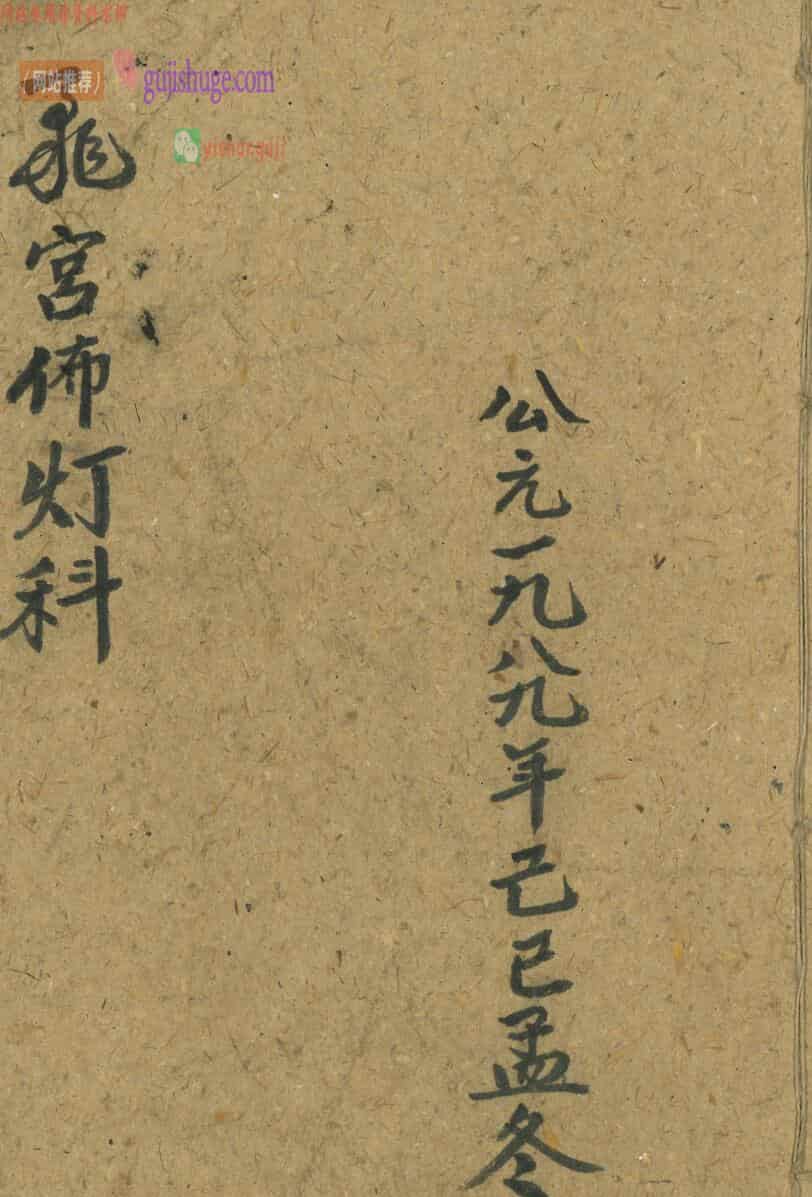 公元一九八九年己巳孟冬
宮佈灯科
(网站推荐)
gujishuge.com